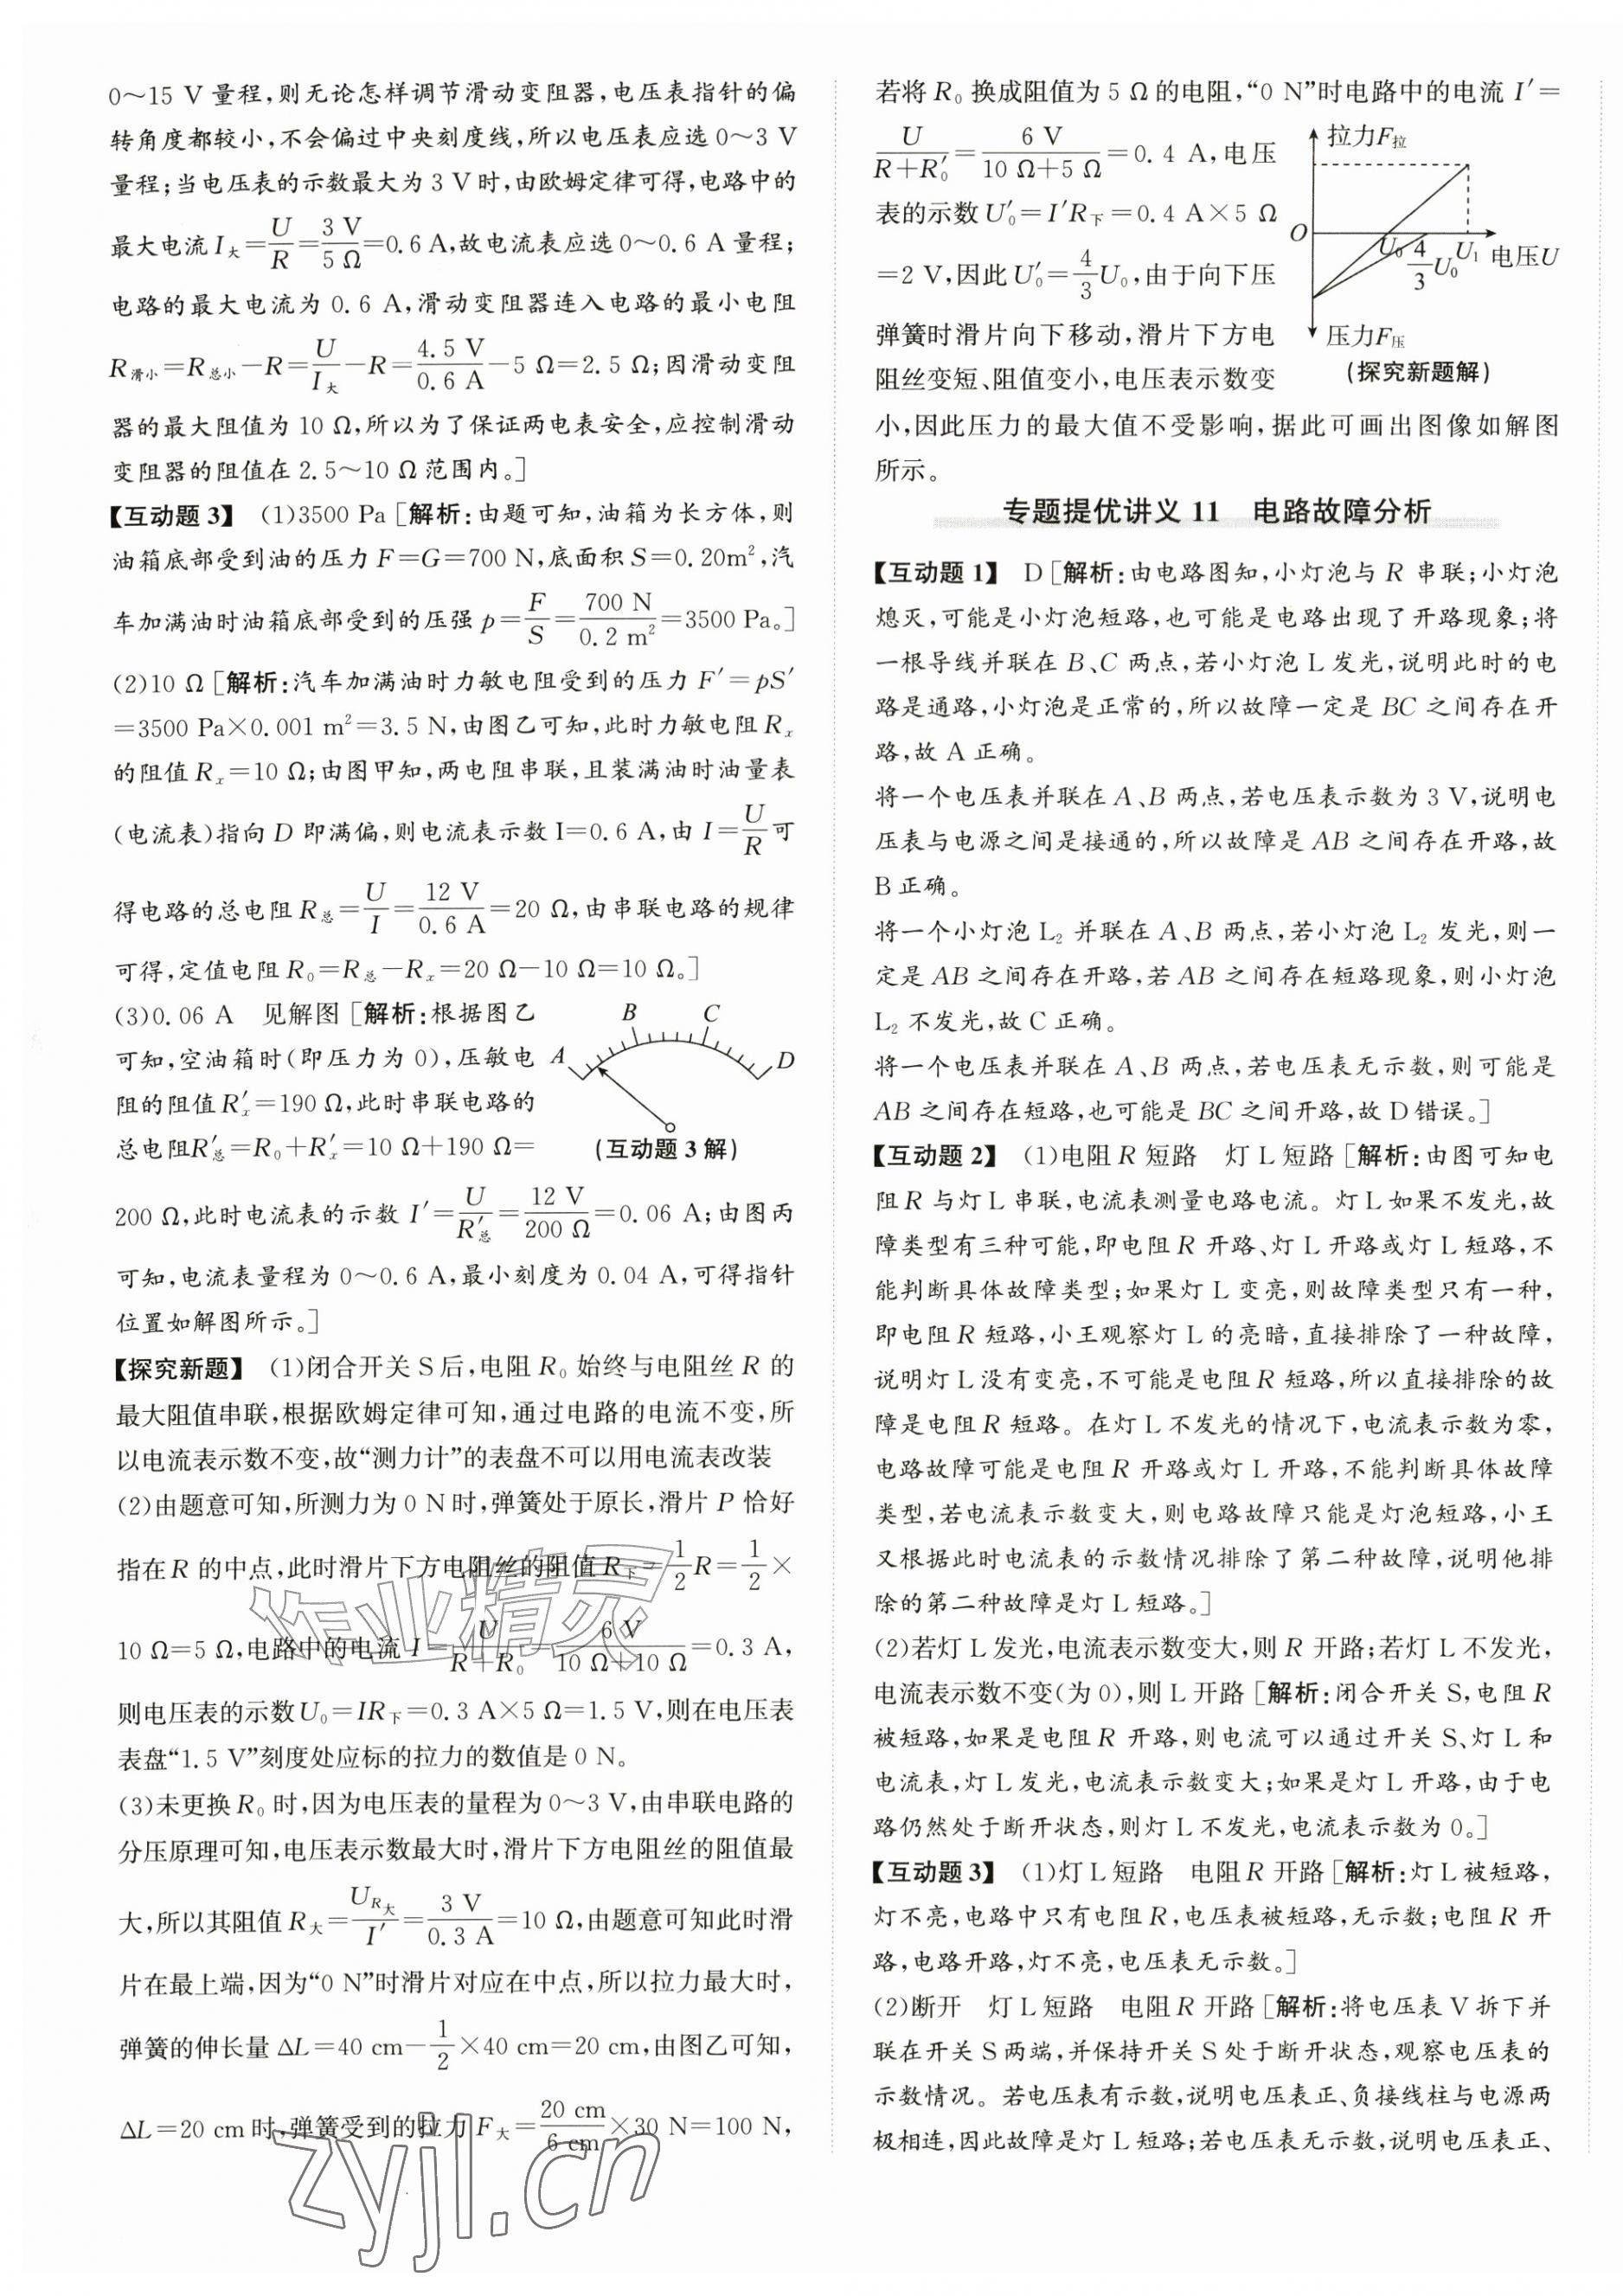 0～15 V 量程,则无论怎样调节滑动变阻器,电压表指针的偏
转角度都较小,不会偏过中央刻度线,所以电压表应选 0～3 V
量程;当电压表的示数最大为 3 V 时,由欧姆定律可得,电路中的
最大电流 I大=U/R=3 V/5 Ω=0.6 A,故电流表应选 0～0.6 A 量程;
电路的最大电流为 0.6 A,滑动变阻器连入电路的最小电阻
R滑小=R总小-R=U/I大-R=4.5 V/0.6 A-5 Ω=2.5 Ω;因滑动变阻
器的最大阻值为 10 Ω,所以为了保证两电表安全,应控制滑动
变阻器的阻值在 2.5～10 Ω 范围内。]
【互动题 3】 (1)3500 Pa [解析:由题可知,油箱为长方体,则
油箱底部受到油的压力 F=G=700 N,底面积 S=0.20m²,汽
车加满油时油箱底部受到的压强 p=F/S=700 N/0.2 m²=3500 Pa。]
(2)10 Ω [解析:汽车加满油时力敏电阻受到的压力 F′=pS′
=3500 Pa×0.001 m²=3.5 N,由图乙可知,此时力敏电阻 Rx
的阻值 Rx=10 Ω;由图甲知,两电阻串联,且装满油时油量表
(电流表)指向 D 即满偏,则电流表示数 I=0.6 A,由 I=U/R可
得电路的总电阻 R总=U/I=12 V/0.6 A=20 Ω,由串联电路的规律
可得,定值电阻 R₀=R总-Rx=20 Ω-10 Ω=10 Ω。]
(3)0.06 A 见解图 [解析:根据图乙
可知,空油箱时(即压力为 0),压敏电
阻的阻值 R′x=190 Ω,此时串联电路的
总电阻R′总=R₀+R′x=10 Ω+190 Ω=
A B C D
(互动题 3 解)
200 Ω,此时电流表的示数 I′=U/R′总=12 V/200 Ω=0.06 A;由图丙
可知,电流表量程为 0～0.6 A,最小刻度为 0.04 A,可得指针
位置如解图所示。]
【探究新题】 (1)闭合开关 S 后,电阻 R₀ 始终与电阻丝 R 的
最大阻值串联,根据欧姆定律可知,通过电路的电流不变,所
以电流表示数不变,故“测力计”的表盘不可以用电流表改装
(2)由题意可知,所测力为 0 N 时,弹簧处于原长,滑片 P 恰好
指在 R 的中点,此时滑片下方电阻丝的阻值 R下=1/2R=1/2×
10 Ω=5 Ω,电路中的电流 I=U/(R+R₀)=6 V/(10 Ω+10 Ω)=0.3 A,
则电压表的示数 U₀=IR下=0.3 A×5 Ω=1.5 V,则在电压表
表盘“1.5 V”刻度处应标的拉力的数值是 0 N。
(3)未更换 R₀ 时,因为电压表的量程为 0～3 V,由串联电路的
分压原理可知,电压表示数最大时,滑片下方电阻丝的阻值最
大,所以其阻值 R大=UR大/I′=3 V/0.3 A=10 Ω,由题意可知此时滑
片在最上端,因为“0 N”时滑片对应在中点,所以拉力最大时,
弹簧的伸长量 ΔL=40 cm-1/2×40 cm=20 cm,由图乙可知,
ΔL=20 cm 时,弹簧受到的拉力 F大=20 cm/6 cm×30 N=100 N,
若将 R₀ 换成阻值为 5 Ω 的电阻,“0 N”时电路中的电流 I′=
U/(R+R′₀)=6 V/(10 Ω+5 Ω)=0.4 A,电压
表的示数 U′₀=I′R下=0.4 A×5 Ω
=2 V,因此 U′₀=4/3U₀,由于向下压
弹簧时滑片向下移动,滑片下方电
阻丝变短、阻值变小,电压表示数变
拉力F拉
O U₀ 4/3U₀ U₁ 电压U
压力F压
(探究新题解)
小,因此压力的最大值不受影响,据此可画出图像如解图
所示。
专题提优讲义 11 电路故障分析
【互动题 1】 D [解析:由电路图知,小灯泡与 R 串联;小灯泡
熄灭,可能是小灯泡短路,也可能是电路出现了开路现象;将
一根导线并联在 B、C 两点,若小灯泡 L 发光,说明此时的电
路是通路,小灯泡是正常的,所以故障一定是 BC 之间存在开
路,故 A 正确。
将一个电压表并联在 A、B 两点,若电压表示数为 3 V,说明电
压表与电源之间是接通的,所以故障是 AB 之间存在开路,故
B 正确。
将一个小灯泡 L₂ 并联在 A、B 两点,若小灯泡 L₂ 发光,则一
定是 AB 之间存在开路,若 AB 之间存在短路现象,则小灯泡
L₂ 不发光,故 C 正确。
将一个电压表并联在 A、B 两点,若电压表无示数,则可能是
AB 之间存在短路,也可能是 BC 之间开路,故 D 错误。]
【互动题 2】 (1)电阻 R 短路 灯 L 短路 [解析:由图可知电
阻 R 与灯 L 串联,电流表测量电路电流。灯 L 如果不发光,故
障类型有三种可能,即电阻 R 开路、灯 L 开路或灯 L 短路,不
能判断具体故障类型;如果灯 L 变亮,则故障类型只有一种,
即电阻 R 短路,小王观察灯 L 的亮暗,直接排除了一种故障,
说明灯 L 没有变亮,不可能是电阻 R 短路,所以直接排除的故
障是电阻 R 短路。在灯 L 不发光的情况下,电流表示数为零,
电路故障可能是电阻 R 开路或灯 L 开路,不能判断具体故障
类型,若电流表示数变大,则电路故障只能是灯泡短路,小王
又根据此时电流表的示数情况排除了第二种故障,说明他排
除的第二种故障是灯 L 短路。]
(2)若灯 L 发光,电流表示数变大,则 R 开路;若灯 L 不发光,
电流表示数不变(为 0),则 L 开路 [解析:闭合开关 S,电阻 R
被短路,如果是电阻 R 开路,则电流可以通过开关 S、灯 L 和
电流表,灯 L 发光,电流表示数变大;如果是灯 L 开路,由于电
路仍然处于断开状态,则灯 L 不发光,电流表示数为 0。]
【互动题 3】 (1)灯 L 短路 电阻 R 开路 [解析:灯 L 被短路,
灯不亮,电路中只有电阻 R,电压表被短路,无示数;电阻 R 开
路,电路开路,灯不亮,电压表无示数。]
(2)断开 灯 L 短路 电阻 R 开路 [解析:将电压表 V 拆下并
联在开关 S 两端,并保持开关 S 处于断开状态,观察电压表的
示数情况。若电压表有示数,说明电压表正、负接线柱与电源两
极相连,因此故障是灯 L 短路;若电压表无示数,说明电压表正、
作业精灵
zyjl.cn